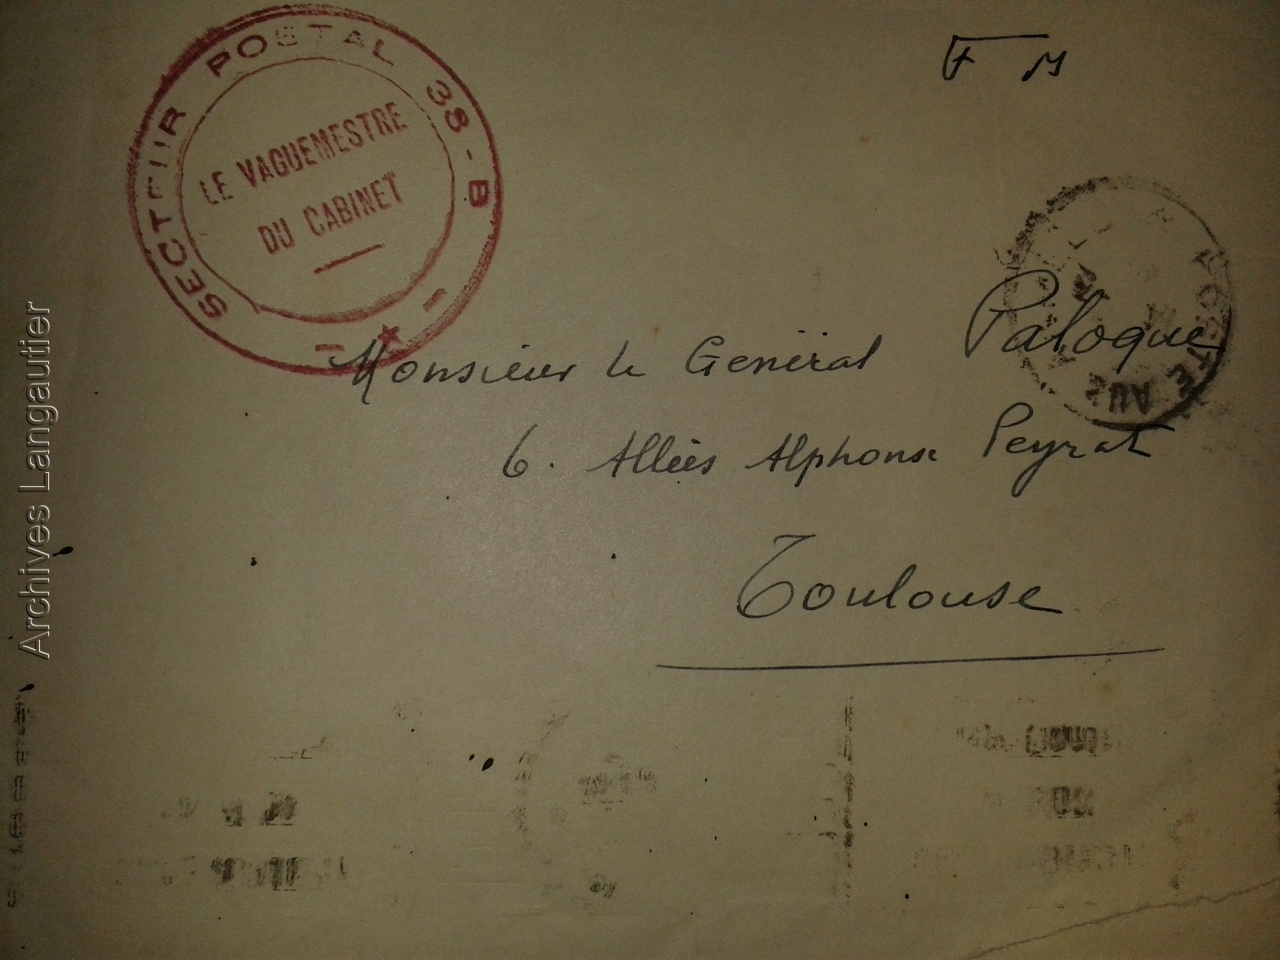 F M
SECTEUR POSTAL 38-B
LE VAGUEMESTRE
DU CABINET
POSTE AUX
Monsieur le Général Paloque
6. Allées Alphonse Peyrat
Toulouse
Archives Langautier